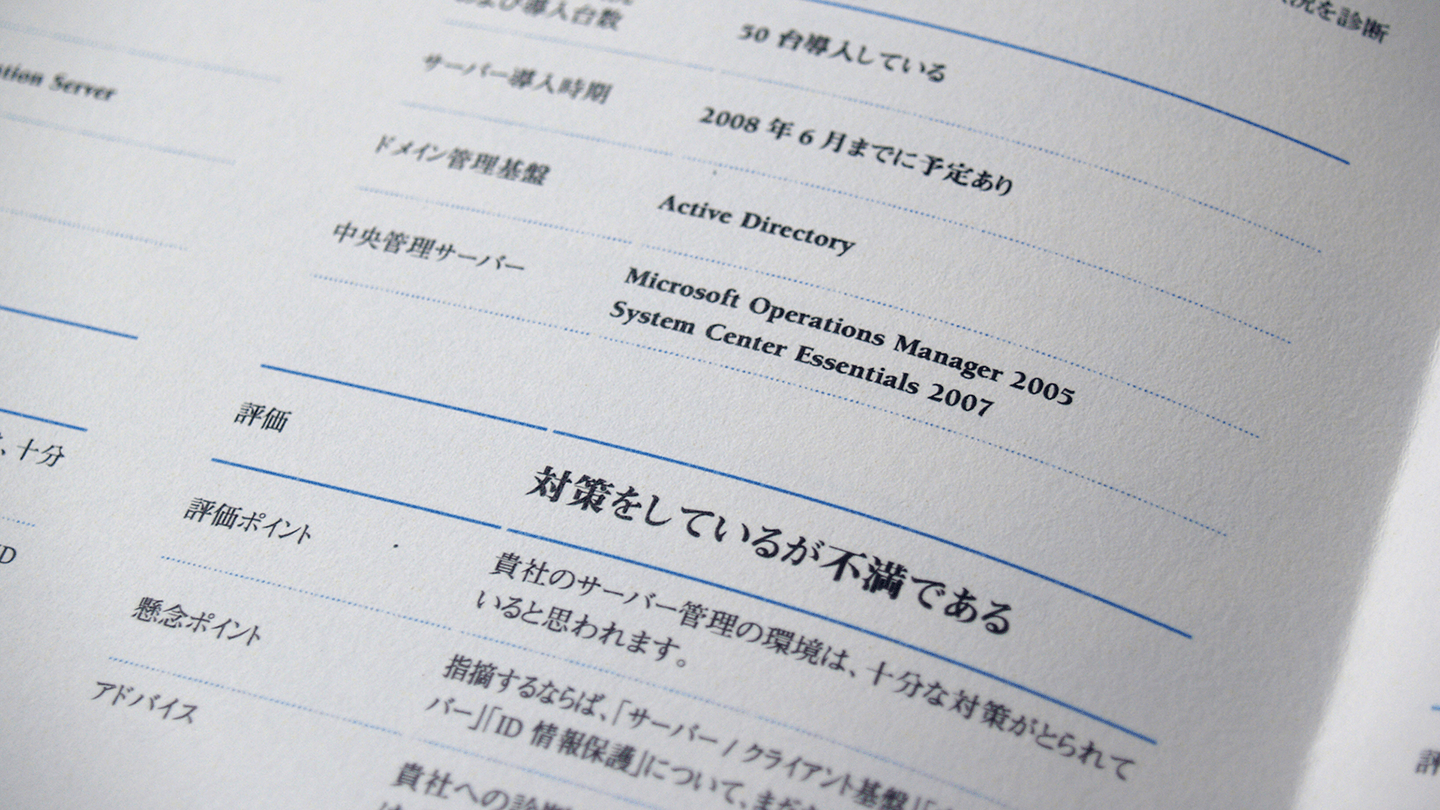 tion Server
、十分
D
況を診断
および導入台数
50 台導入している
サーバー導入時期
2008 年 6 月までに予定あり
ドメイン管理基盤
Active Directory
中央管理サーバー
Microsoft Operations Manager 2005
System Center Essentials 2007
評価
対策をしているが不満である
評価ポイント
貴社のサーバー管理の環境は、十分な対策がとられて
いると思われます。
懸念ポイント
指摘するならば、「サーバー / クライアント基盤」「
バー」「ID 情報保護」について、まだ
アドバイス
貴社への診断